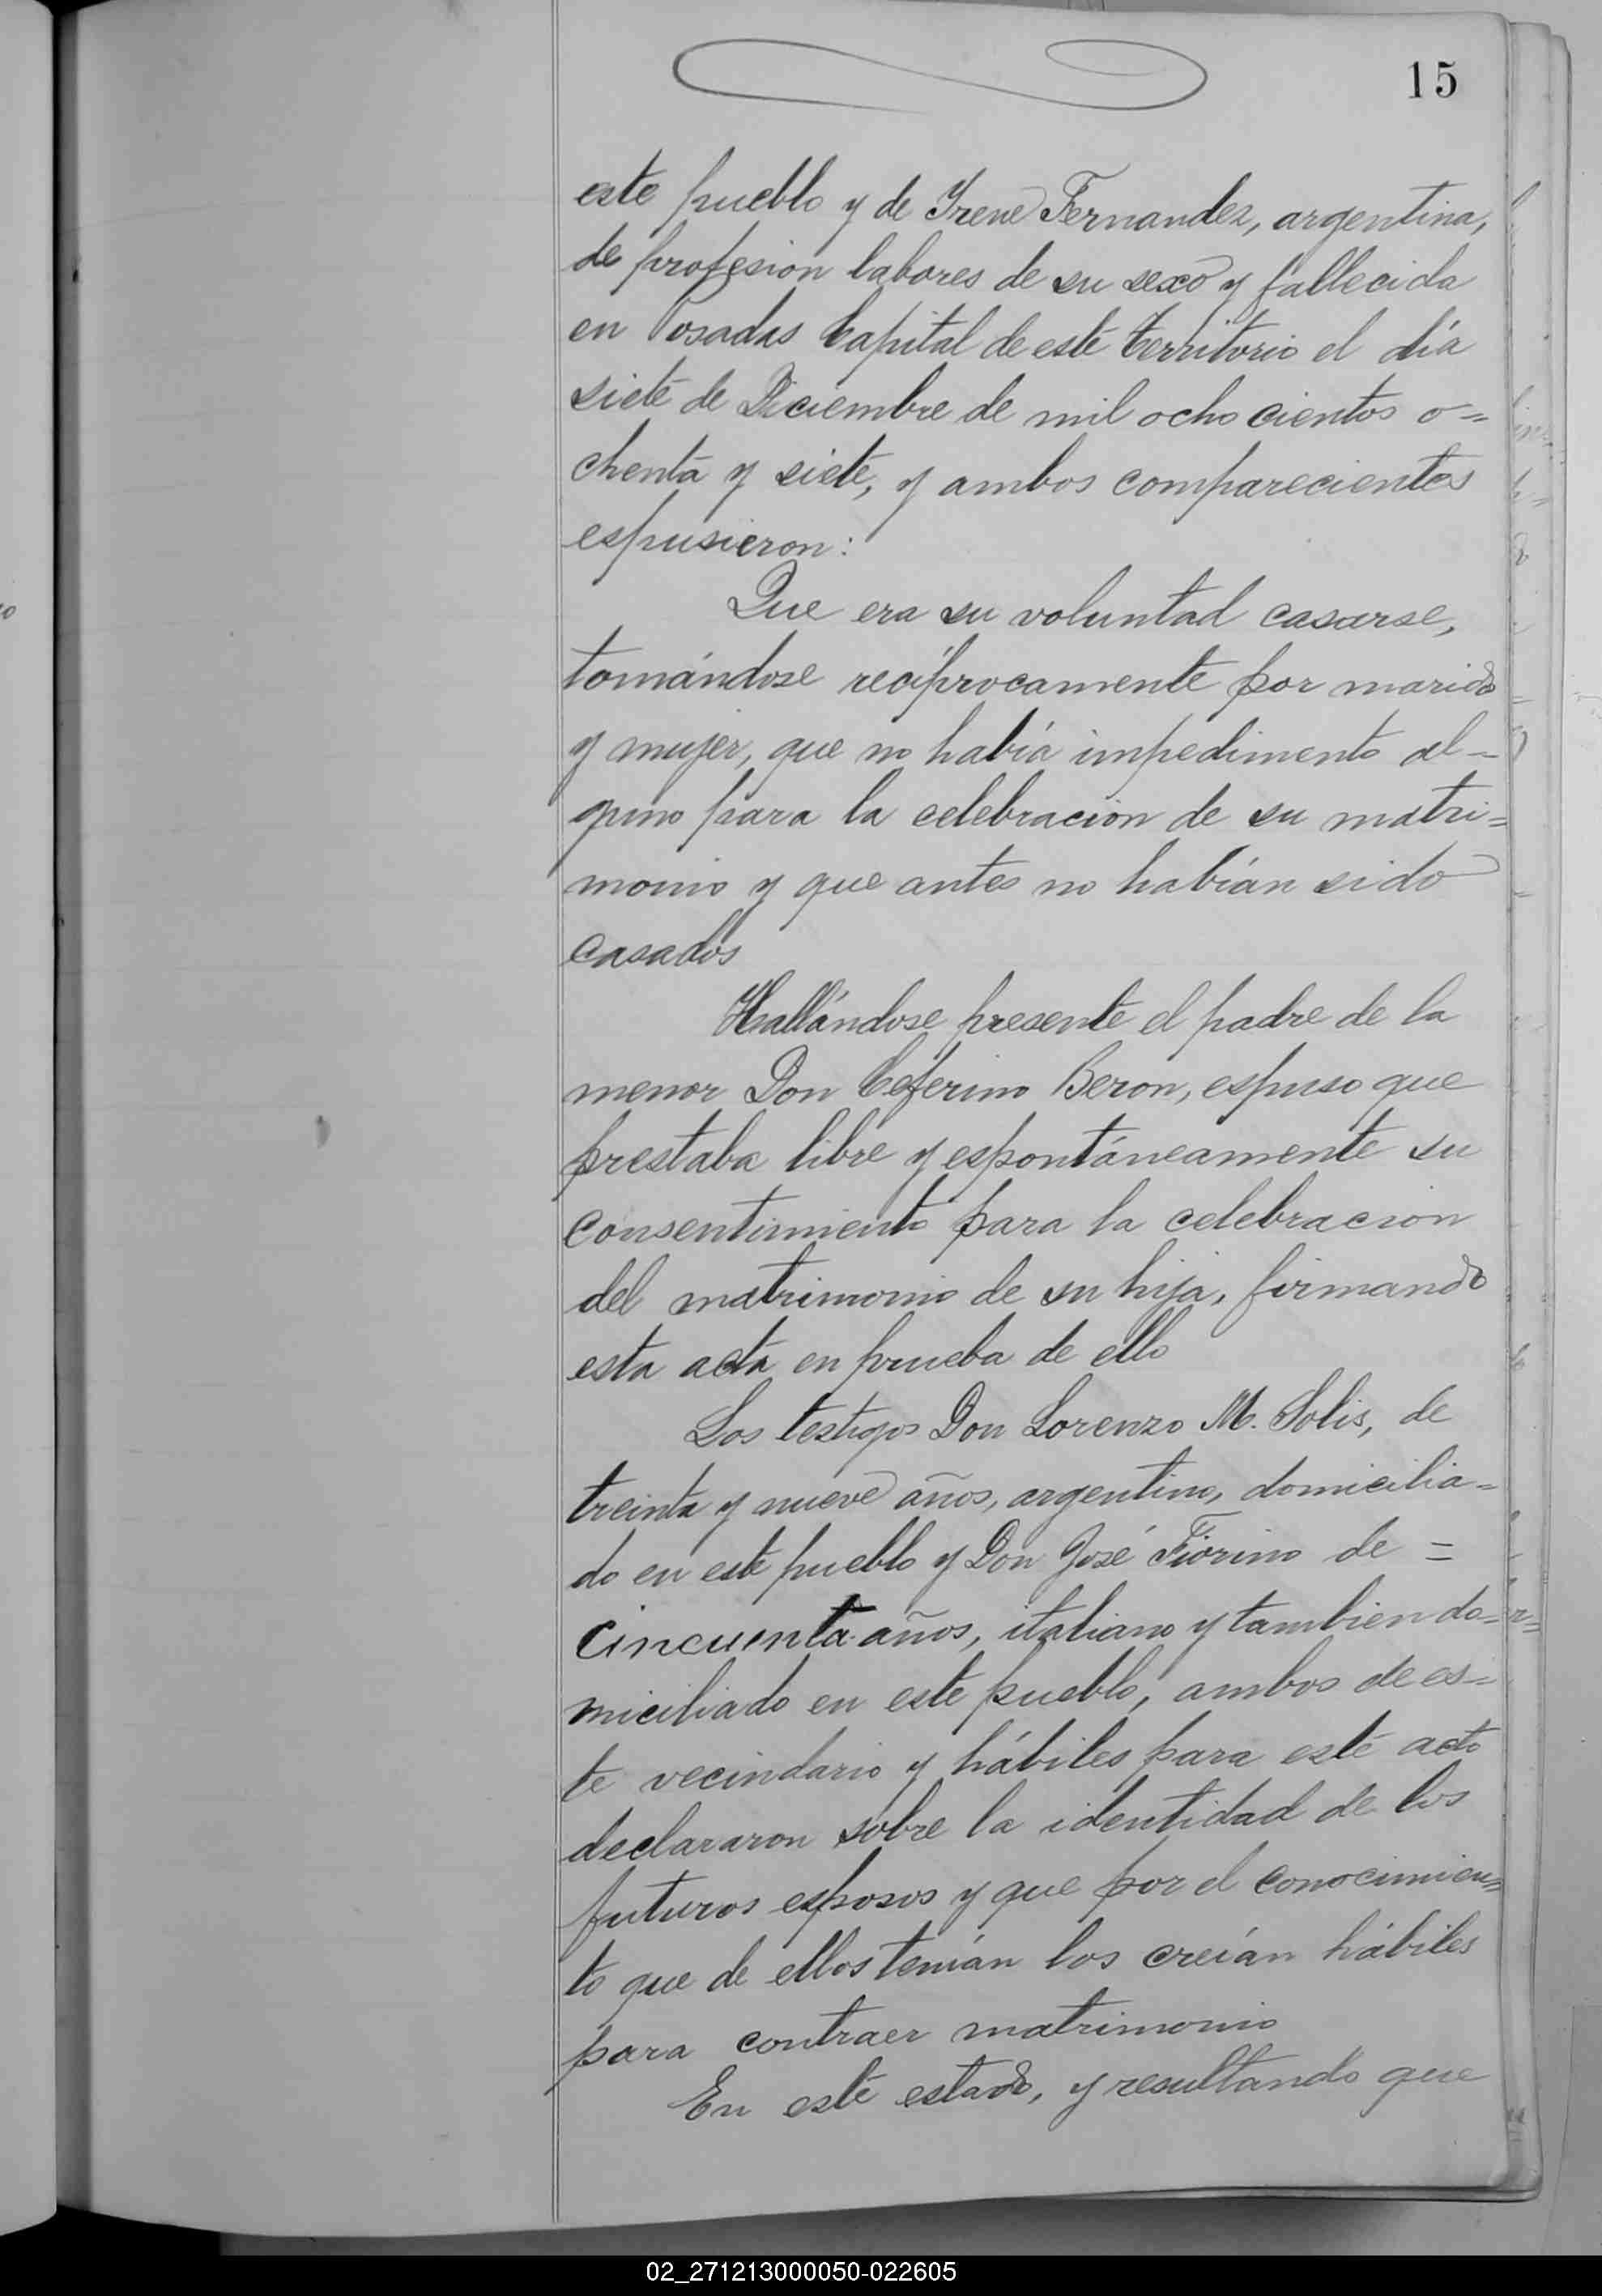 15
este pueblo y de Irene Fernandez, argentina,
de profesion labores de su sexo y fallecida
en Posadas Capital de este territorio el día
siete de Diciembre de mil ocho cientos o=
chenta y siete, y ambos comparecientes
espusieron:
Que era su voluntad casarse,
tomándose recíprocamente por marido
y mujer, que no había impedimento al-
guno para la celebración de su matri=
monio y que antes no habían sido
casados
Hallándose presente el padre de la
menor Don Ceferino Beron, espuso que
prestaba libre y espontáneamente su
consentimiento para la celebracion
del matrimonio de su hija, firmando
esta acta en prueba de ello
Los testigos Don Lorenzo M. Solis, de
treinta y nueve años, argentino, domicilia=
do en este pueblo y Don José Fiorino de =
cincuenta años, italiano y tambien do=
miciliado en este pueblo, ambos de es=
te vecindario y hábiles para este acto
declararon sobre la identidad de los
futuros esposos y que por el conocimien=
to que de ellos tenían los creían hábiles
para contraer matrimonio
En este estado, y resultando que
02_271213000050-022605